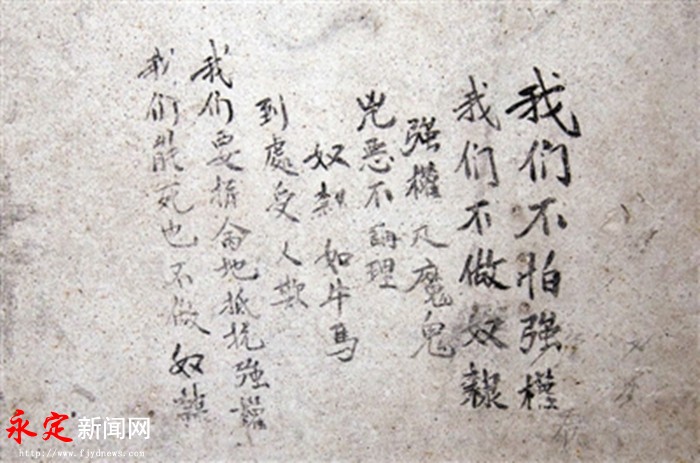 我们不怕强權
我们不做奴隸
强權 魔鬼
兇恶不講理
奴隸如牛馬
到處受人欺
我们要拚命地抵抗强權
我们能死也不做奴隸
永定新闻网
http://www.fjydnews.com